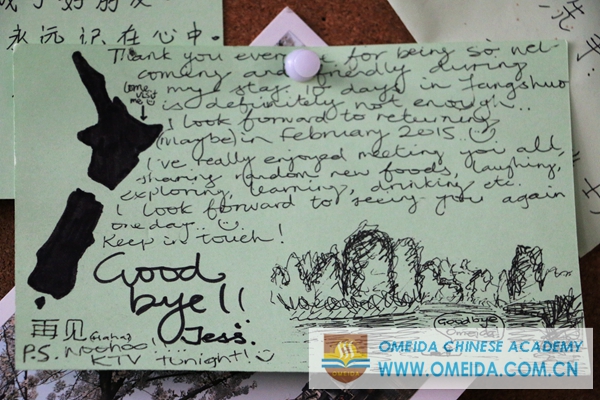 永远记在心中。
Thank you for being so wel-
coming and friendly during
my stay. 10 days in Yangshuo
is definitely not enough...
I look forward to returning
(maybe) in February 2015..
I've really enjoyed meeting you all,
sharing random new foods, laughing,
exploring, learning, drinking etc.
I look forward to seeing you again
one day..
Keep in touch!
come
visit
me
Good
bye!!
Jess.
再见 (haha)
P.S.
KTV tonight!
Goodbye
Omeida!
OMEIDA
OMEIDA CHINESE ACADEMY
WWW.OMEIDA.COM.CN